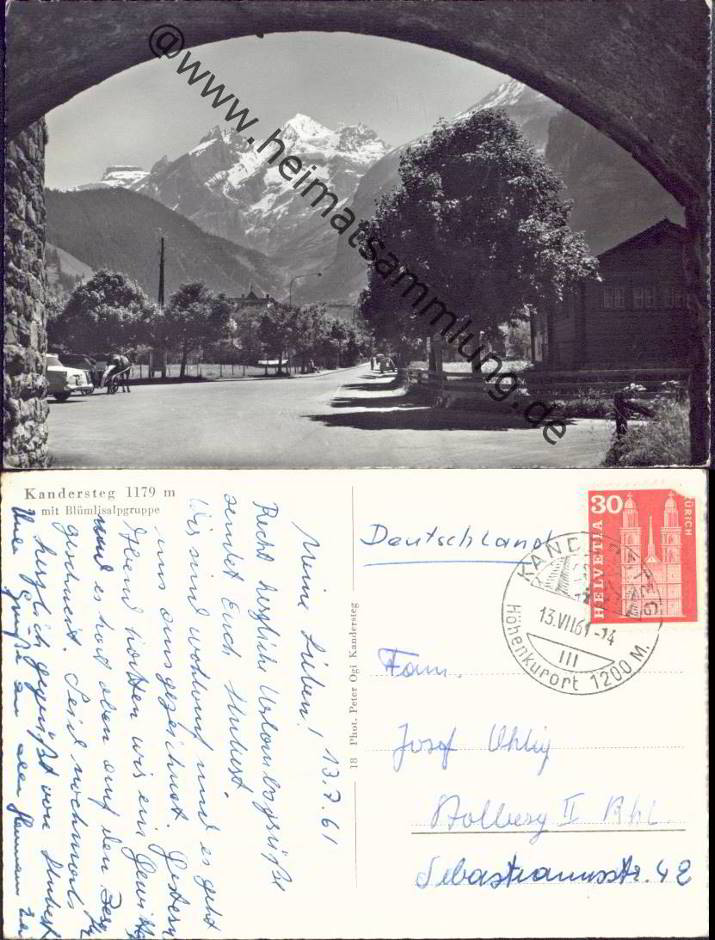 @www.heimatsammlung.de
Kandersteg 1179 m
mit Blümlisalpgruppe
Meine Lieben! 13.7.61
Recht herzliche Urlaubsgrüße
sendet Euch Hubert.
Wir sind wohlauf und es geht
uns ausgezeichnet. Gestern
Abend hatten wir ein
und es hat oben auf den
geschneit. Seid nochmals
herzlich gegrüßt von Hubert
Grüße an
18 Phot. Peter Ogi Kandersteg
Deutschland
30
HELVETIA
ZÜRICH
KANDERSTEG
13.VII.61-14
III
Höhenkurort 1200 M.
Fam.
Josef Uhlig
Stolberg II Rhl.
Sebastianusstr. 42